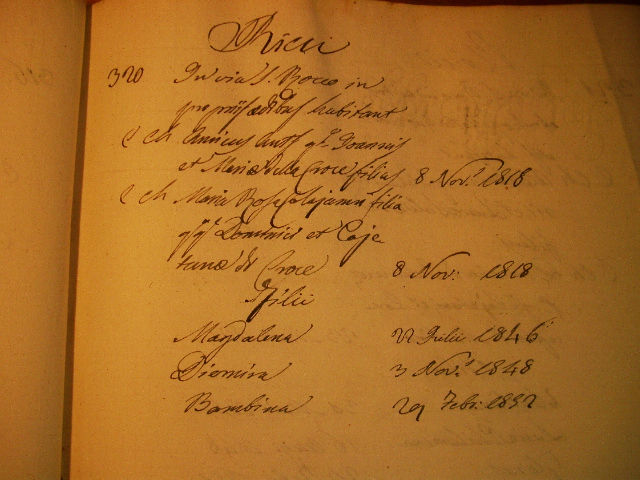 Ricci
320 In via S. Rocco in
propriis ædibus habitant
c ch Amicus Ant.s q.m Joannis
et Mariæ Della Croce filius 8 Nov.s 1818
c ch Maria Rosa Colajanni filia
qq.m Dominici et Caje
tanæ di Croce 8 Nov: 1818
filii
Magdalena 22 Julii 1846
Diomira 3 Nov.s 1848
Bambina 29 Febr: 1852